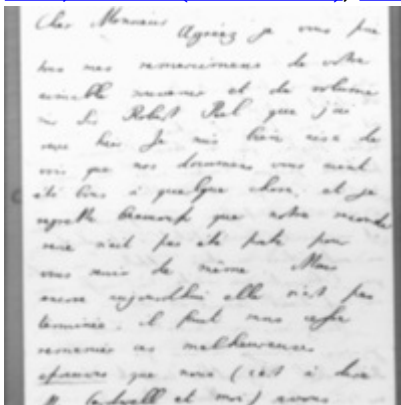 Cher Monsieur
Agréez je vous prie
tous mes remerciemens de votre
aimable souvenir et du volume
sur Sir Robert Peel que j'ai
reçu hier Je suis bien aise de
voir que nos documens vous aient
été bons à quelque chose, et je
regrette beaucoup que notre
vous n'ait pas été faite pour
vous de même. Mais
encore aujourd'hui elle n'est pas
terminée. il faut sans cesse
remanier ces malheureuses
épreuves que nous (c'est à dire
M. Cardwell et moi) avons